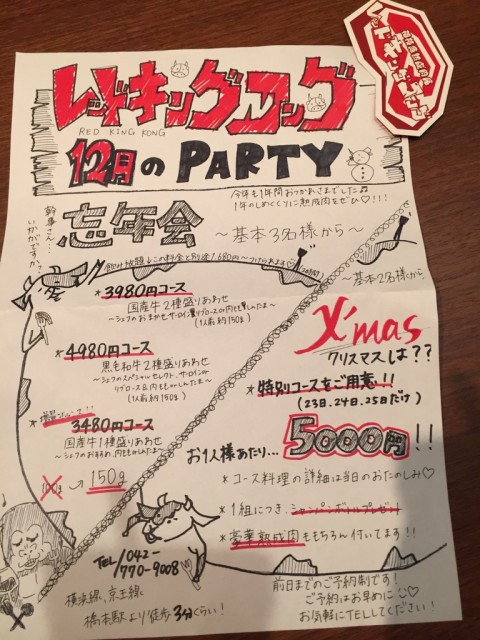 レッドキングコング
RED KING KONG
レッドキングコング
12月のPARTY
今年も1年間おつかれさまでした♫
1年のしめくくりに熟成肉をぜひ♡!!!
幹事さん…
いかがですか?
忘年会
〜基本3名様から〜
飲み放題↓この料金と別途1,680円〜つけられます(2時間)
〜基本2名様から
*3980円コース
国産牛2種盛りあわせ
(1人前 約150g)
*4980円コース
黒毛和牛2種盛りあわせ
(1人前 約150g)
*増量でルース!!
3480円コース
国産牛1種盛りあわせ
→150g
X'mas
クリスマスは??
*特別コースをご用意!!
(23日.24日.25日だけ)
お1人様あたり… 5000円!!
*コース料理の詳細は当日のおたのしみ♡
*1組につき、シャンパンボトルプレゼント
*豪華熟成肉ももちろん付いてます!!
TEL/042-
770-9008
横浜線、京王線
橋本駅より徒歩3分くらい!
前日までのご予約制です!
ご予約はお早めに♡
お気軽にTELしてください!